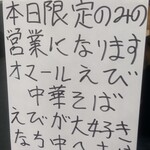 本日限定のみの
営業になります
オマールえび
中華そば
えびが大好き
なち中へ